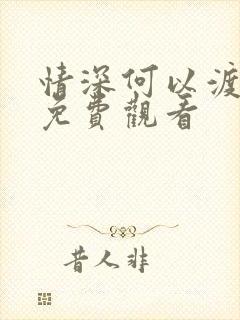 情深何以渡
免費觀看
昔人非